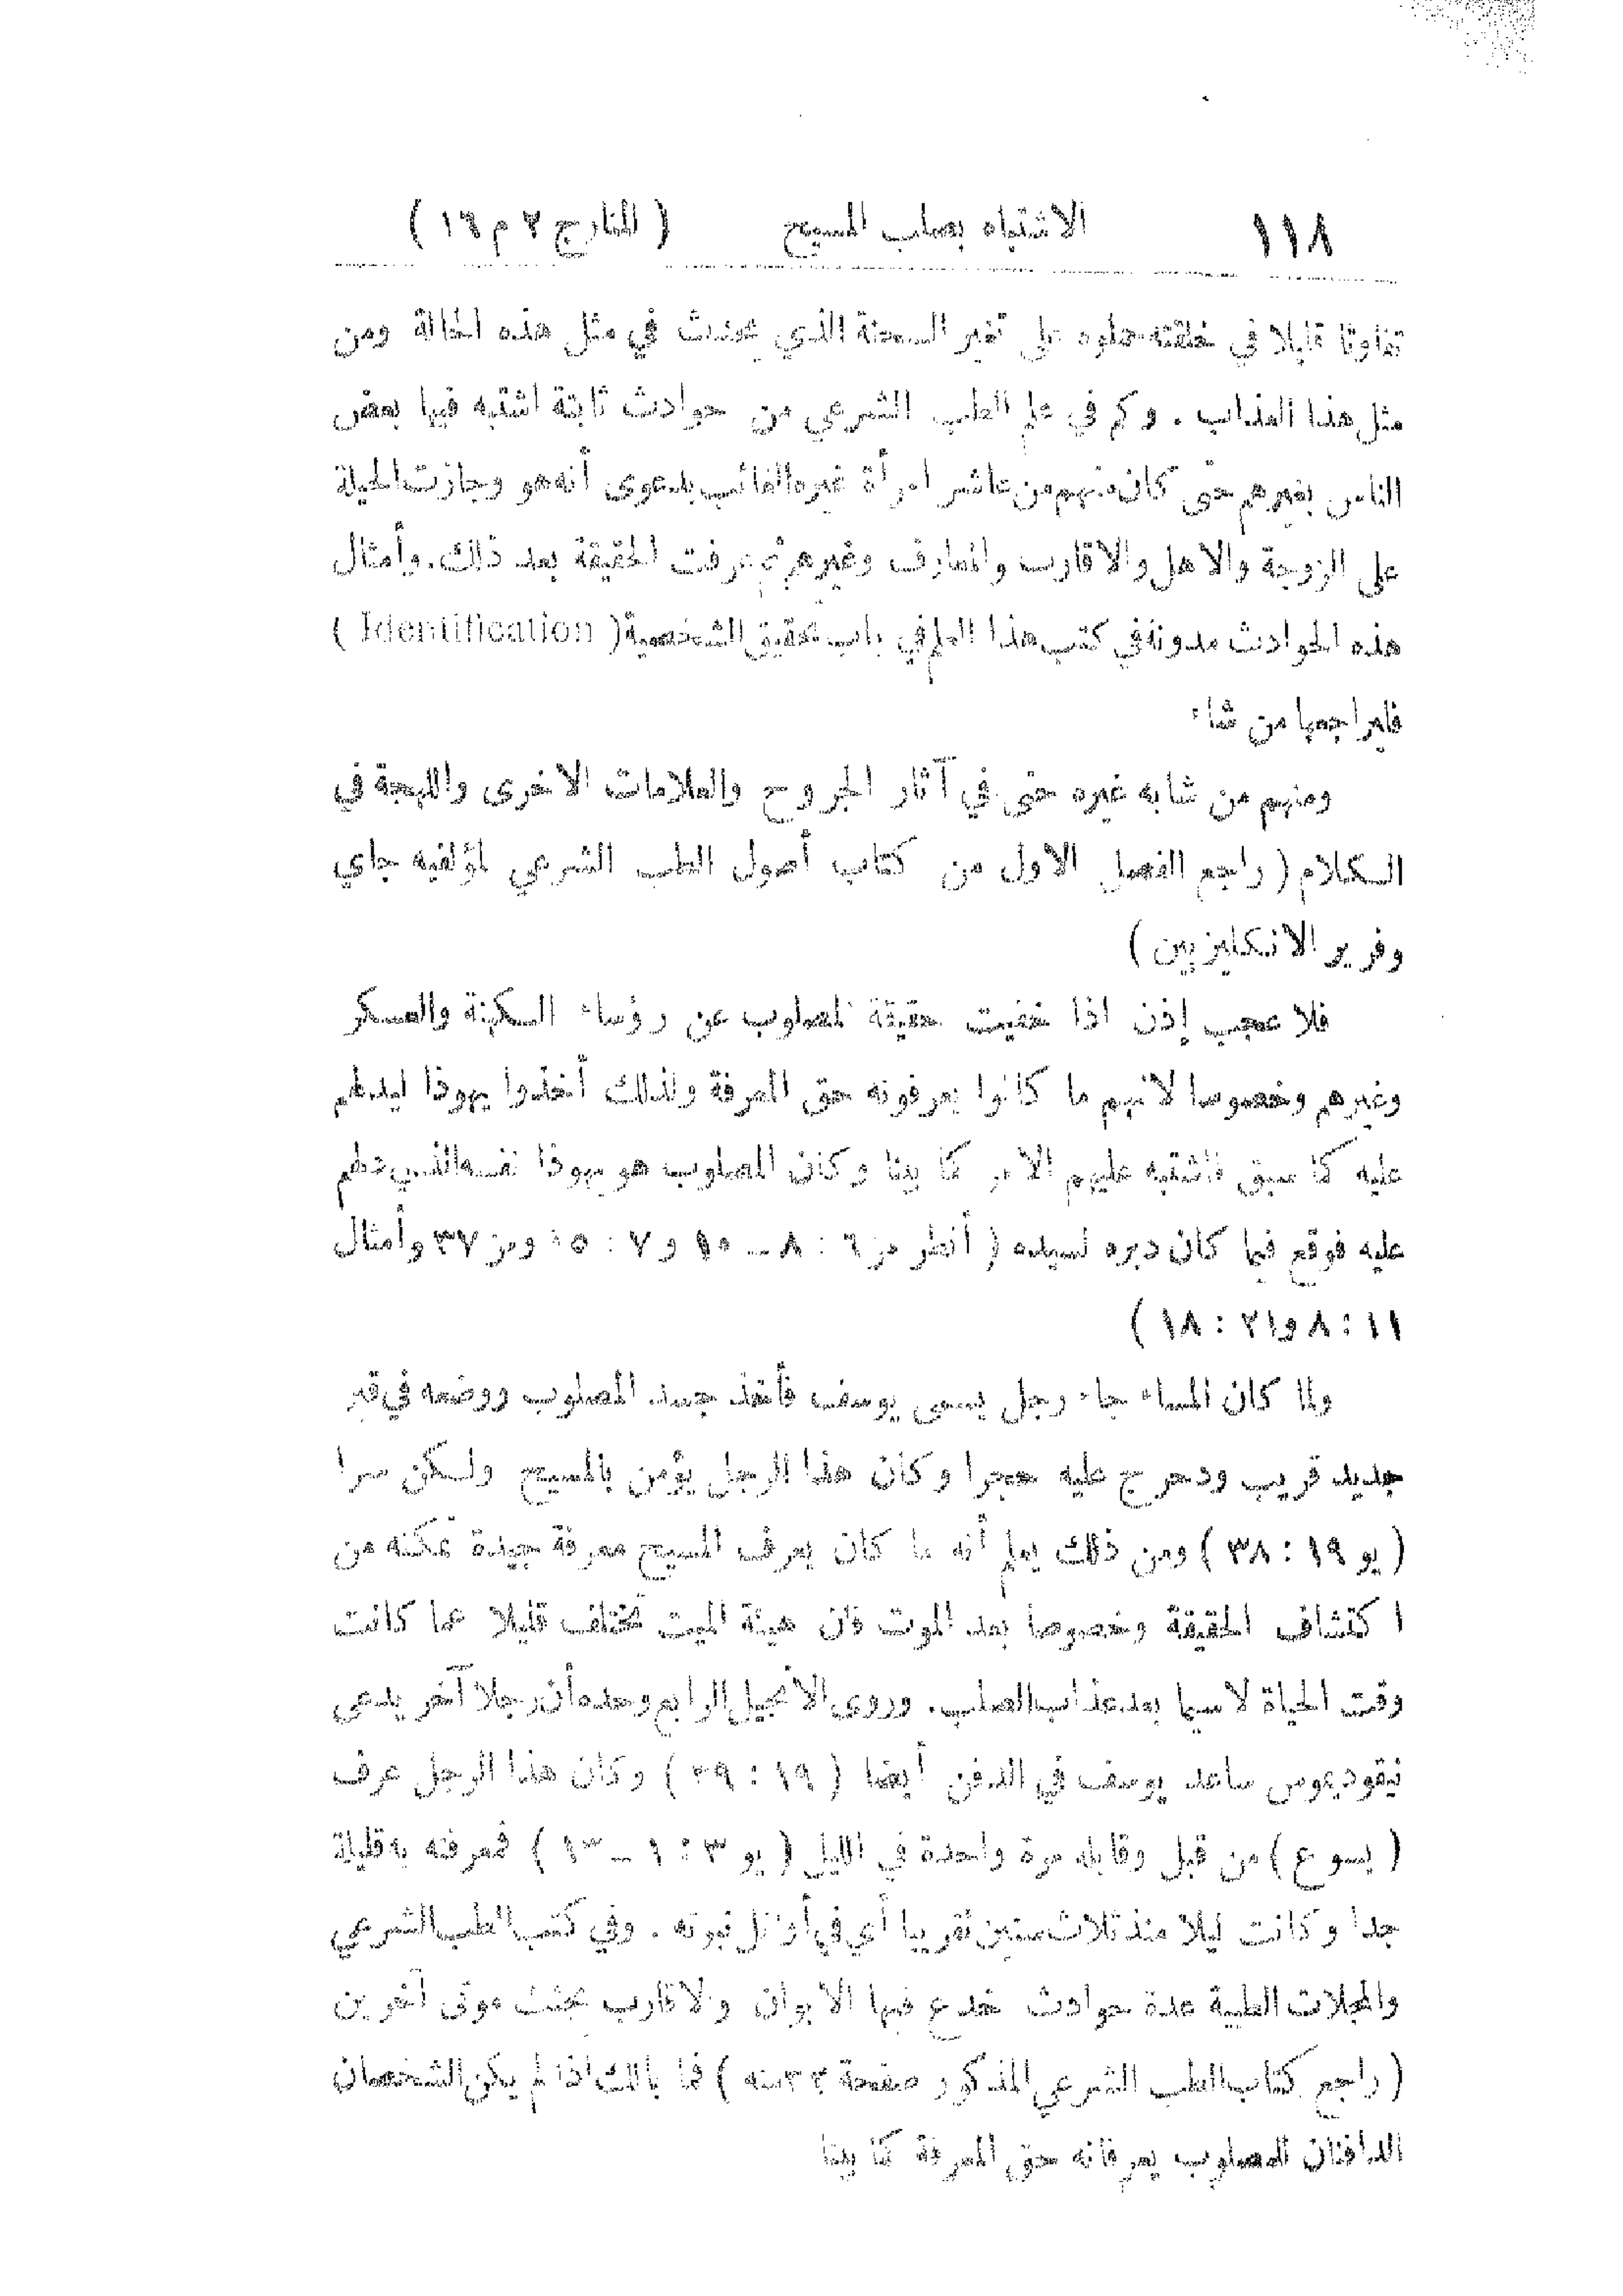 ١١٨ الاشتباه بصلب المسيح ( المنارج ٢ م ١٦ )
تفاوتا قليلا في خلقته حملوه على تغير السحنة الذي يحدث في مثل هذه الحالة ومن
مثل هذا العذاب . وكم في علم الطب الشرعي من حوادث ثابتة اشتبه فيها بعض
الناس بغيرهم حتى كان منهم من عاشر امرأة غيره الغائب بدعوى أنه هو وجازت الحيلة
على الزوجة والاهل والاقارب والمعارف وغيرهم ثم عرفت الحقيقة بعد ذلك . وأمثال
هذه الحوادث مدونة في كتب هذا العلم في باب تحقيق الشخصية ( Identification )
فليراجعها من شاء
ومنهم من شابه غيره حتى في آثار الجروح والعلامات الاخرى واللهجة في
الكلام ( راجع الفصل الاول من كتاب أصول الطب الشرعي لمؤلفيه جاي
وفرير الانكليزيين )
فلا عجب إذن اذا خفيت حقيقة المصلوب عن رؤساء الكهنة والعسكر
وغيرهم وخصوصا لانهم ما كانوا يعرفونه حق المعرفة ولذلك أخذوا يهوذا ليدلهم
عليه كما سبق فاشتبه عليهم الامر كما بينا وكان المصلوب هو يهوذا نفسه الذي دلهم
عليه فوقع فيما كان دبره لسيده ( أنظر مز ٦ : ٨ – ١٠ و ٧ : ١٥ ومز ٣٧ وأمثال
١١ : ٨ و ٢١ : ١٨ )
ولما كان المساء جاء رجل يسمى يوسف فأخذ جسد المصلوب ووضعه في قبر
جديد قريب ودحرج عليه حجرا وكان هذا الرجل يؤمن بالمسيح ولكن سرا
( يو ١٩ : ٣٨ ) ومن ذلك يعلم أنه ما كان يعرف المسيح معرفة جيدة تمكنه من
اكتشاف الحقيقة وخصوصا بعد الموت فان هيئة الميت تختلف قليلا عما كانت
وقت الحياة لاسيما بعد عذاب الصلب . وروى الانجيل الرابع وحده أن رجلا آخر يدعى
نيقوديموس ساعد يوسف في الدفن أيضا ( ١٩ : ٣٩ ) وكان هذا الرجل عرف
( يسوع ) من قبل وقابله مرة واحدة في الليل ( يو ٣ : ١ – ١٣ ) فمعرفته به قليلة
جدا وكانت ليلا منذ ثلاث سنين تقريبا أي في أوائل نبوته . وفي كتب الطب الشرعي
والمجلات الطبية عدة حوادث خدع فيها الابوان والاقارب بجثث موتى آخرين
( راجع كتاب الطب الشرعي المذكور صفحة ٣٣ منه ) فما بالك اذا لم يكن الشخصان
الدافنان للمصلوب يعرفانه حق المعرفة كما بينا